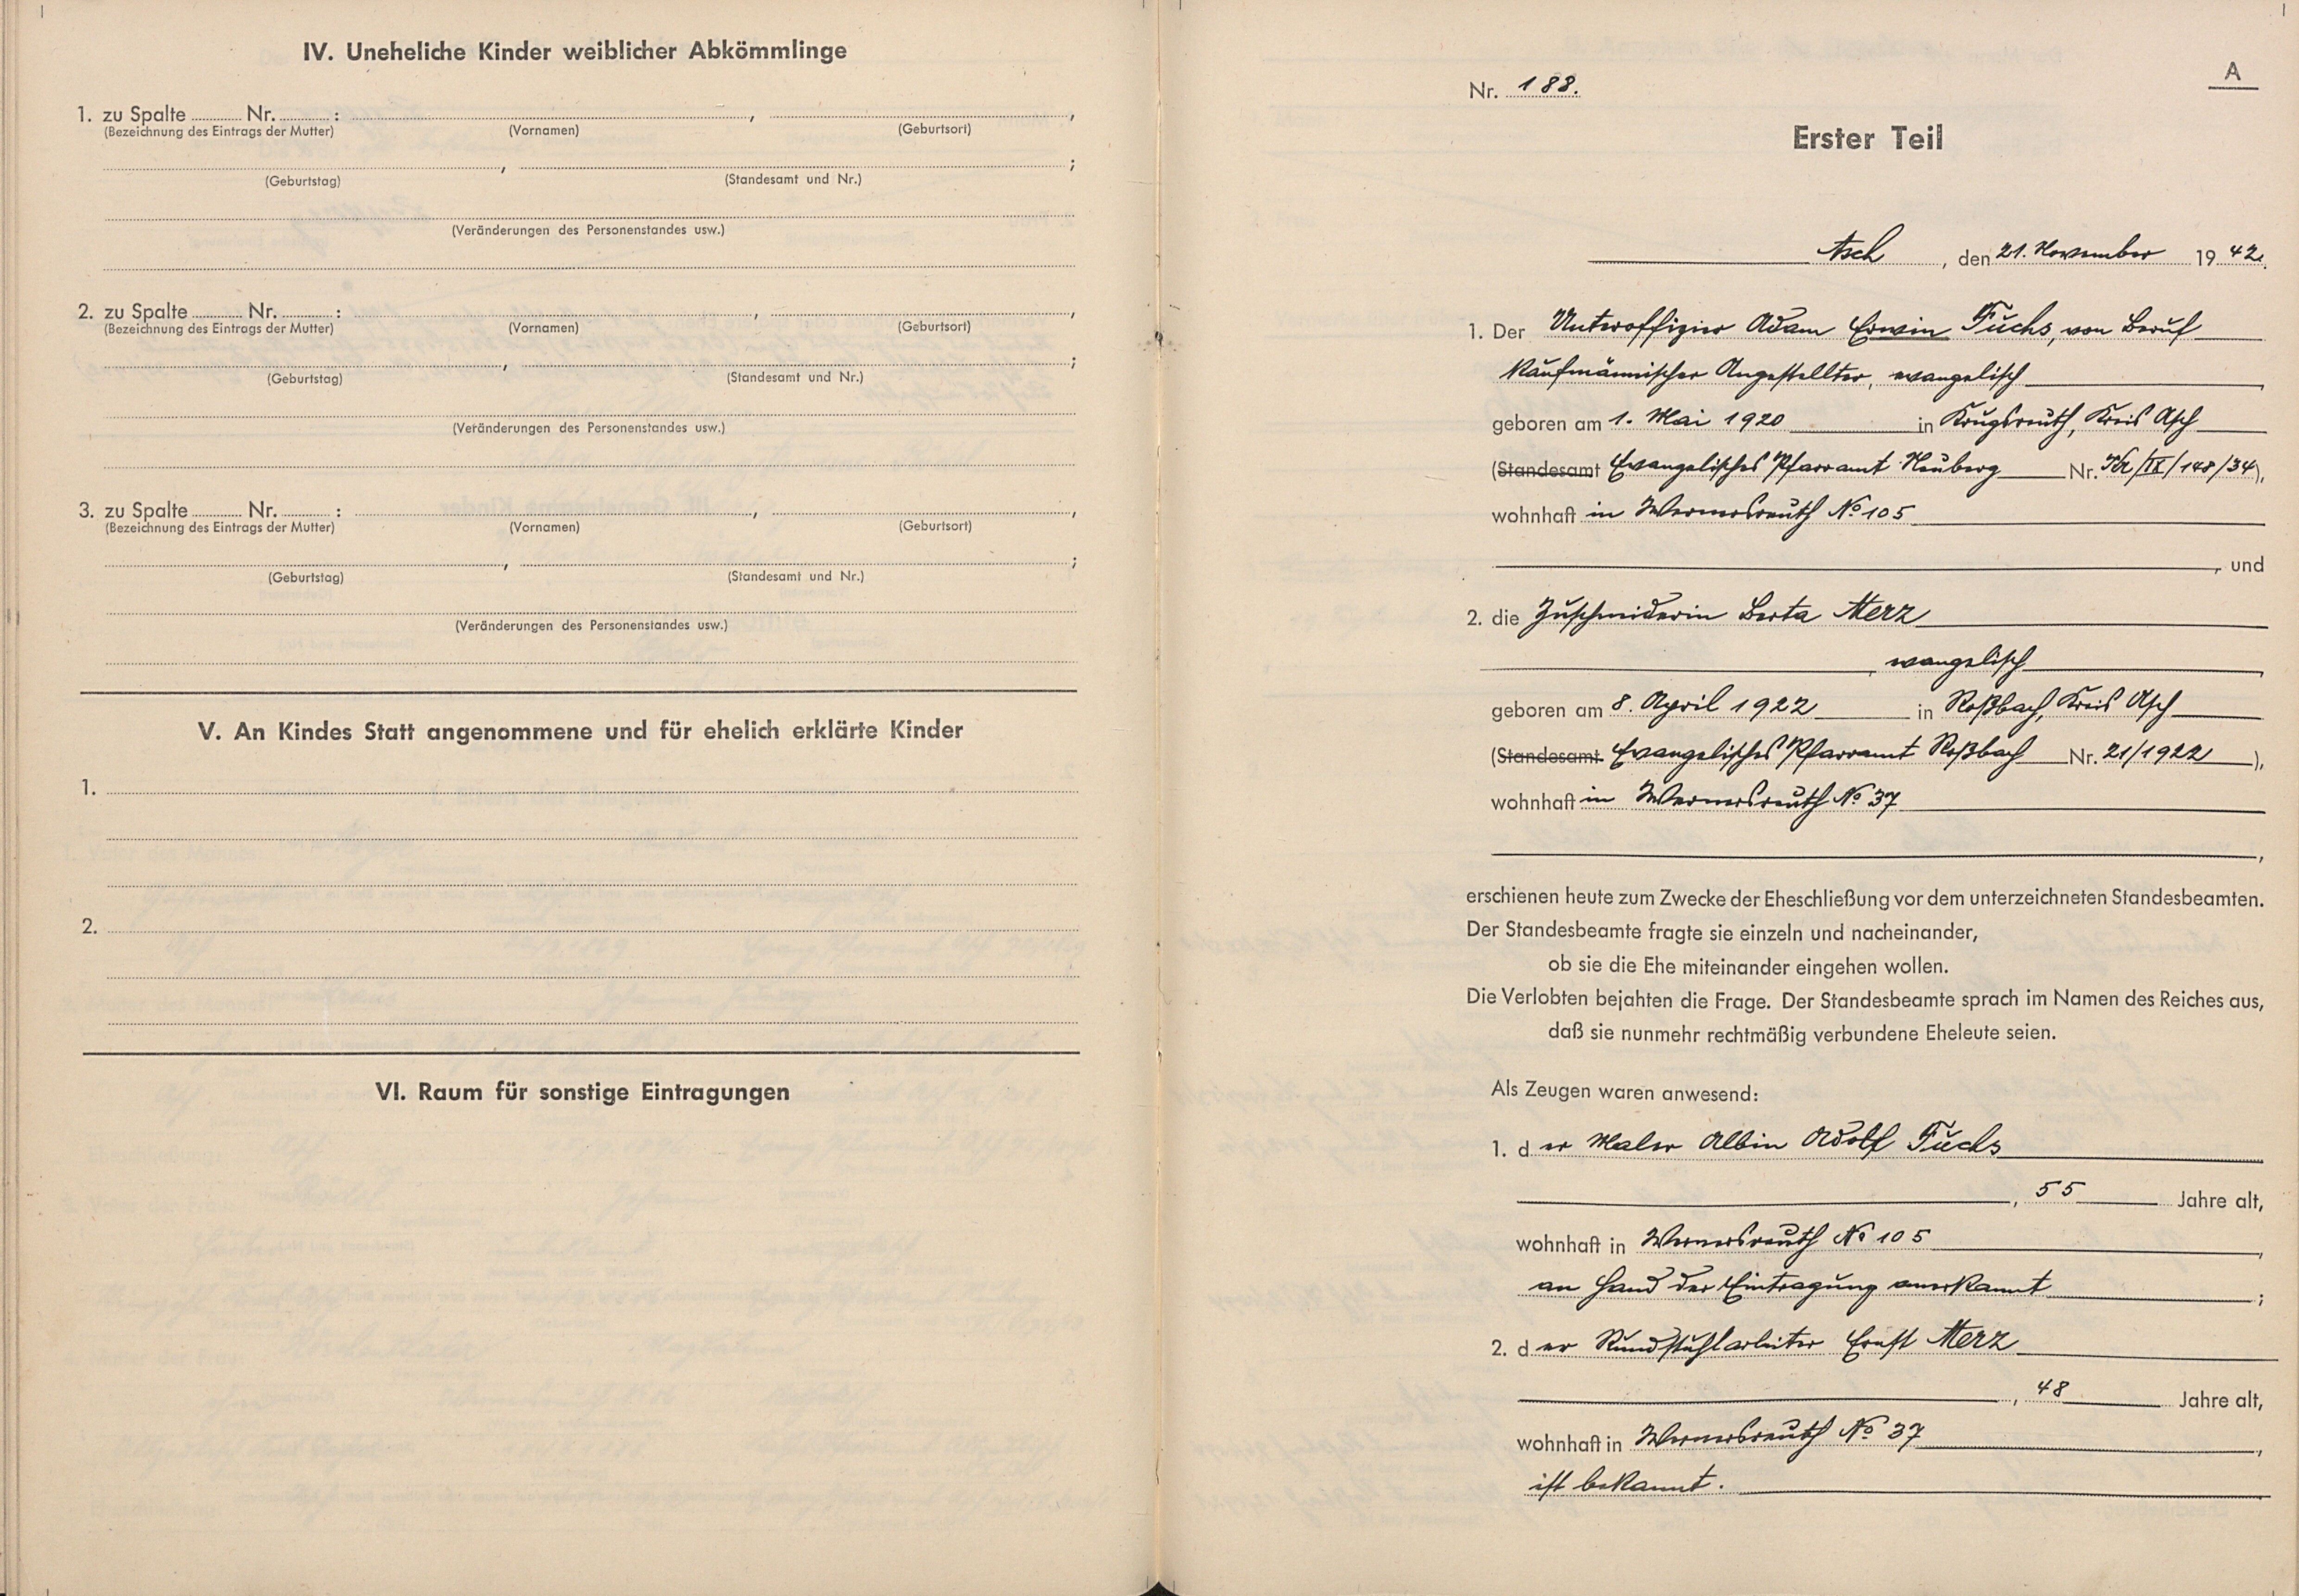 IV. Uneheliche Kinder weiblicher Abkömmlinge
1. zu Spalte ........ Nr. ........ : ........ , ........ ,
(Bezeichnung des Eintrags der Mutter) (Vornamen) (Geburtsort)
........ , ........ ;
(Geburtstag) (Standesamt und Nr.)
(Veränderungen des Personenstandes usw.)
2. zu Spalte ........ Nr. ........ : ........ , ........ ,
(Bezeichnung des Eintrags der Mutter) (Vornamen) (Geburtsort)
........ , ........ ;
(Geburtstag) (Standesamt und Nr.)
(Veränderungen des Personenstandes usw.)
3. zu Spalte ........ Nr. ........ : ........ , ........ ,
(Bezeichnung des Eintrags der Mutter) (Vornamen) (Geburtsort)
........ , ........ ;
(Geburtstag) (Standesamt und Nr.)
(Veränderungen des Personenstandes usw.)
V. An Kindes Statt angenommene und für ehelich erklärte Kinder
1.
2.
VI. Raum für sonstige Eintragungen
A
Nr. 188.
Erster Teil
Asch, den 21. November 1942.
1. Der Unteroffizier Adam Erwin Fuchs, von Beruf
kaufmännischer Angestellter, evangelisch,
geboren am 1. Mai 1920 in Krugsreuth, Kreis Asch
(Standesamt Evangelisches Pfarramt Neuberg Nr. Kr/IX/148/34),
wohnhaft in Wernersreuth No 105
, und
2. die Zuschneiderin Berta Merz
, evangelisch,
geboren am 8. April 1922 in Roßbach, Kreis Asch
(Standesamt Evangelisches Pfarramt Roßbach Nr. 21/1922),
wohnhaft in Wernersreuth No 37
,
erschienen heute zum Zwecke der Eheschließung vor dem unterzeichneten Standesbeamten.
Der Standesbeamte fragte sie einzeln und nacheinander,
ob sie die Ehe miteinander eingehen wollen.
Die Verlobten bejahten die Frage. Der Standesbeamte sprach im Namen des Reiches aus,
daß sie nunmehr rechtmäßig verbundene Eheleute seien.
Als Zeugen waren anwesend:
1. der Maler Albin Adolf Fuchs
, 55 Jahre alt,
wohnhaft in Wernersreuth No 105,
an Hand der Eintragung anerkannt;
2. der Rundstuhlarbeiter Ernst Merz
, 48 Jahre alt,
wohnhaft in Wernersreuth No 37,
ist bekannt.